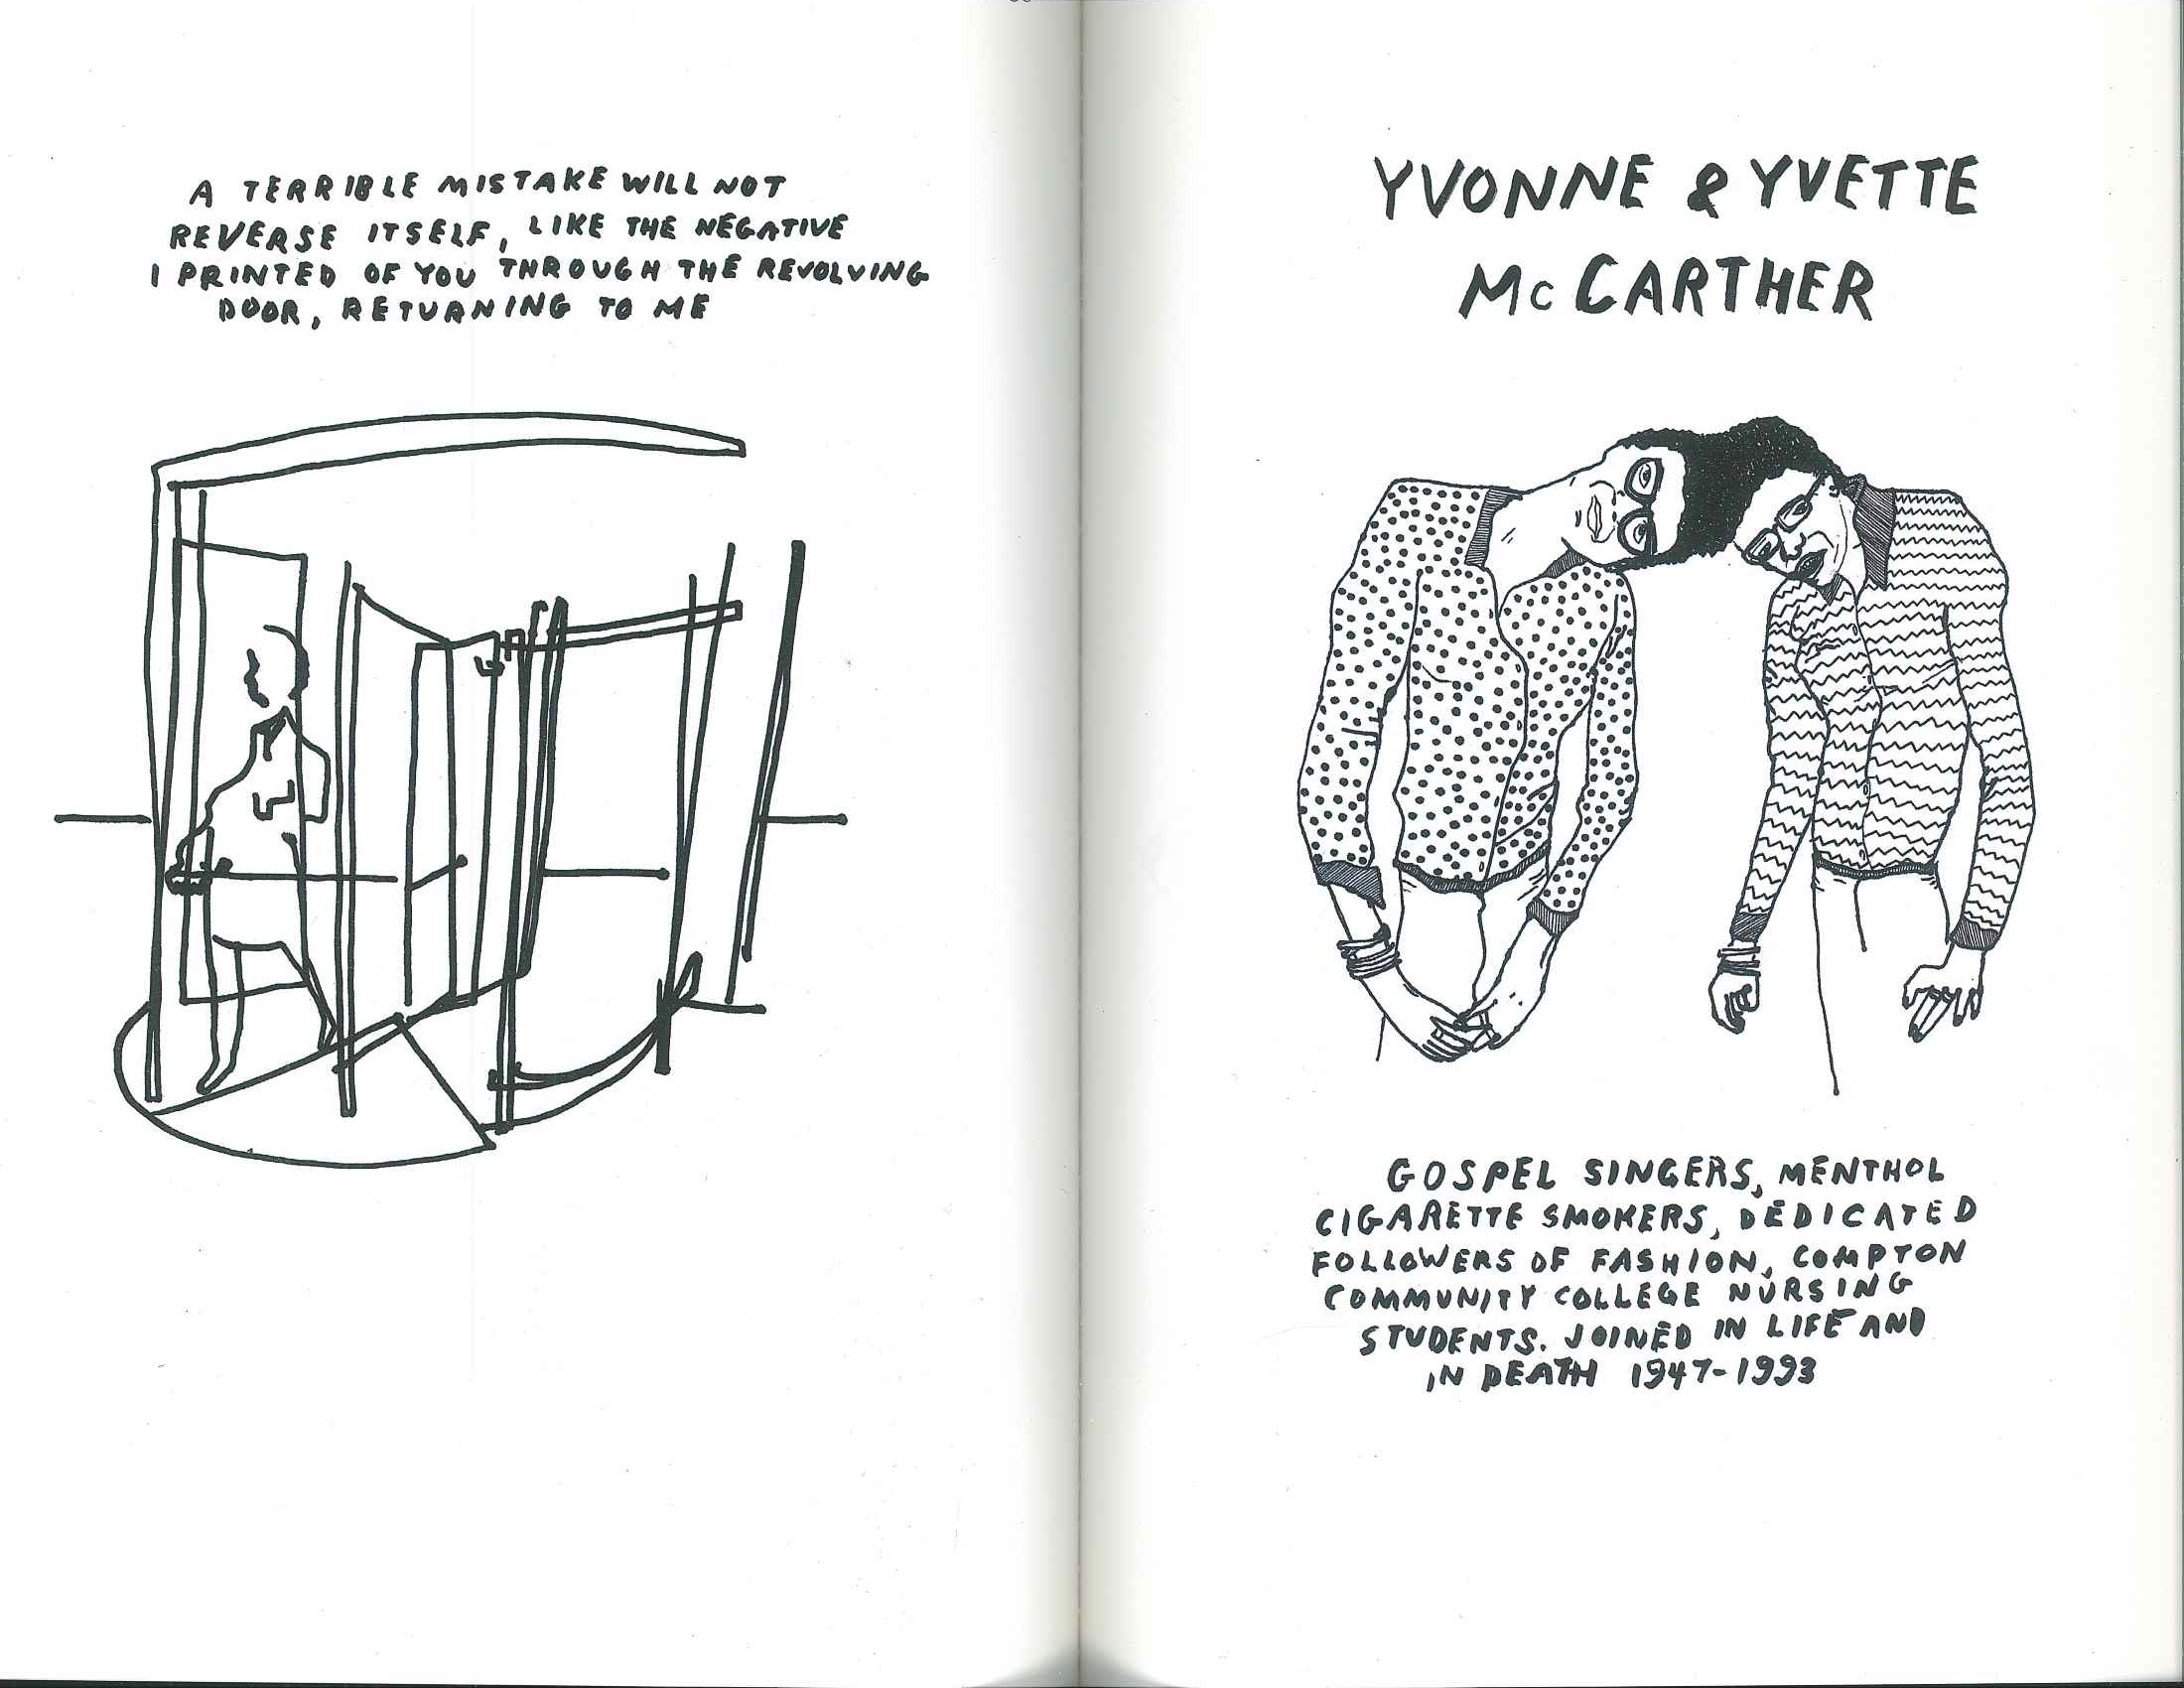 A TERRIBLE MISTAKE WILL NOT
REVERSE ITSELF, LIKE THE NEGATIVE
I PRINTED OF YOU THROUGH THE REVOLVING
DOOR, RETURNING TO ME
YVONNE & YVETTE
McCARTHER
GOSPEL SINGERS, MENTHOL
CIGARETTE SMOKERS, DEDICATED
FOLLOWERS OF FASHION, COMPTON
COMMUNITY COLLEGE NURSING
STUDENTS. JOINED IN LIFE AND
IN DEATH 1947-1993